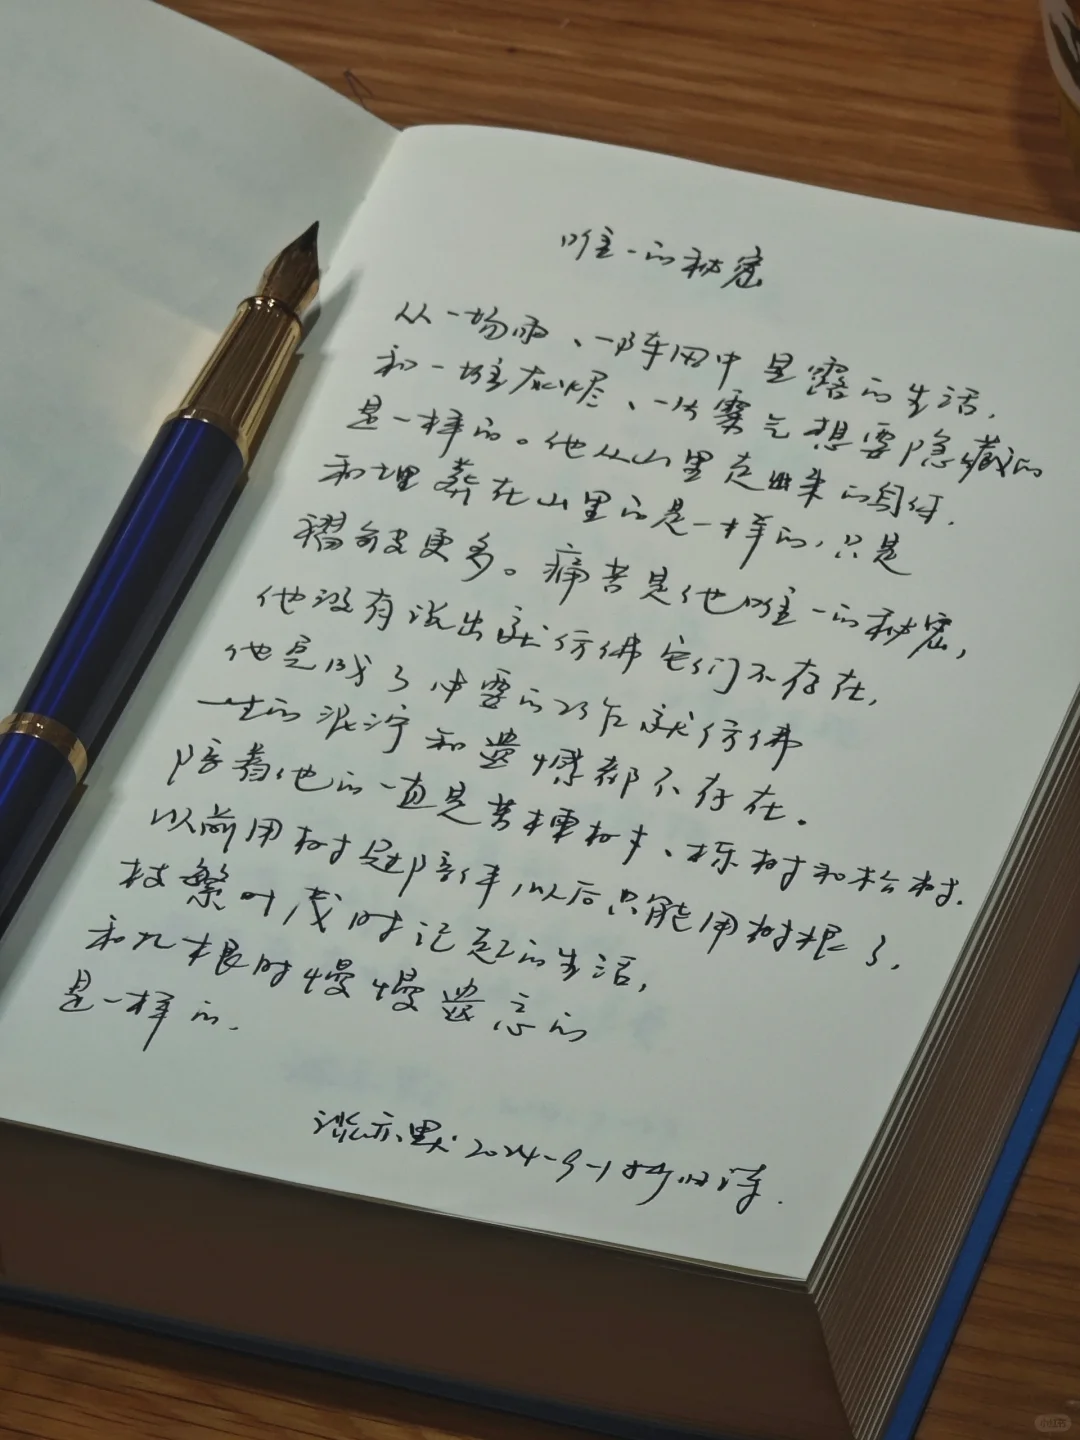 唯一的秘密
从一场雨、一阵风中显露的生活,
和一堆灰烬、一片雾气想要隐藏的
是一样的。他从山里走出来的身体,
和埋葬在山里的是一样的,只是
褶皱更多。痛苦是他唯一的秘密,
他没有说出就仿佛它们不存在,
他完成了重要的工作就仿佛
一生的泥泞和遗憾都不存在。
陪着他的一直是苦楝树、栎树和松树.
以前用树荫陪伴,以后只能用树根了.
枝繁叶茂时记起的生活,
和扎根时慢慢遗忘的
是一样的.
谈亦默 2024-9-1
小红书